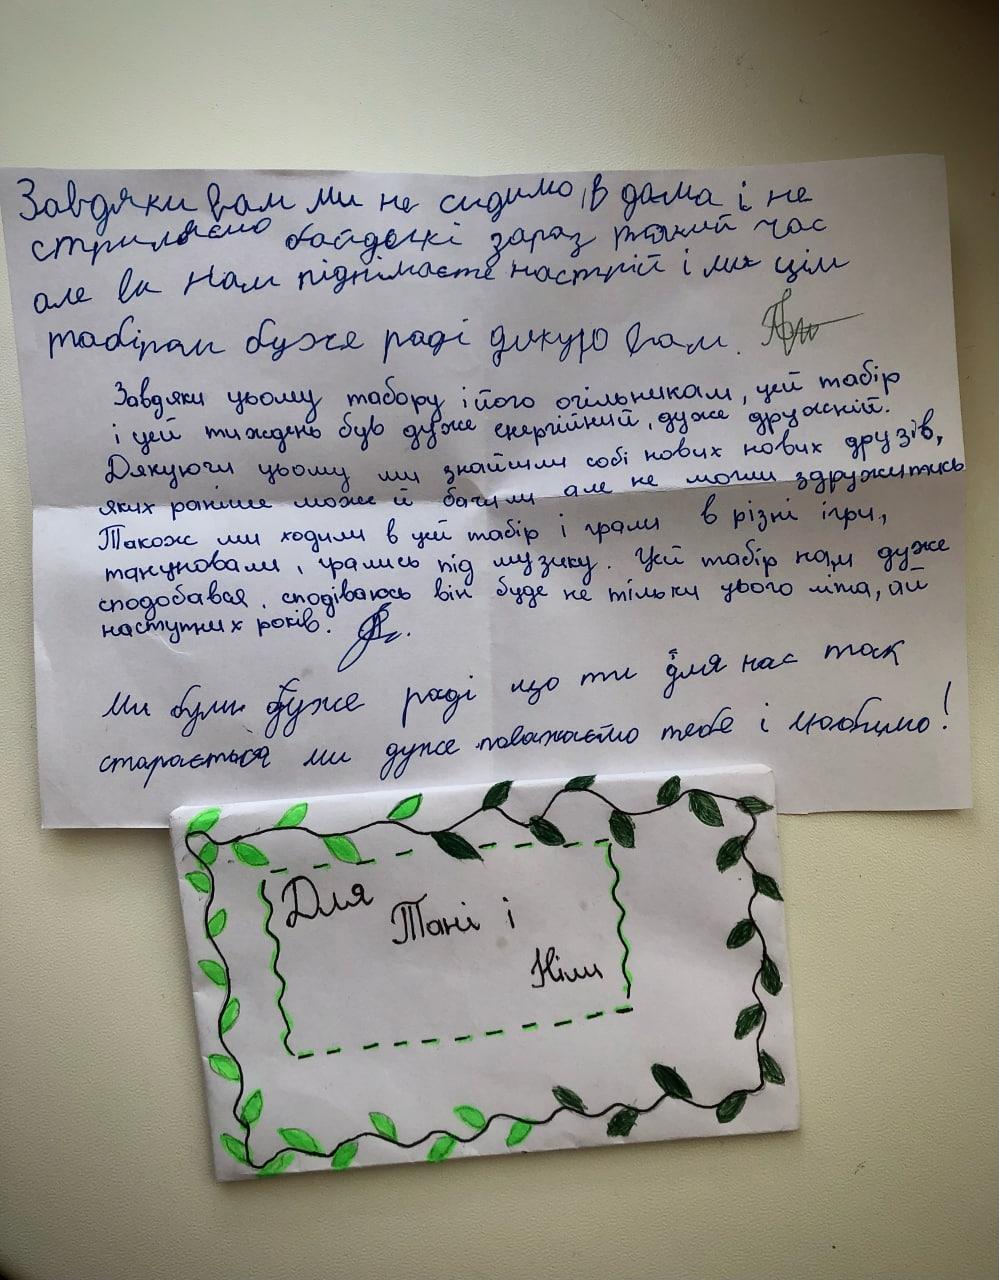 Завдяки вам ми не сидимо в дома і не
стриляємо байдекі зараз тякий час
але ви нам піднімаєте настрій і ми цім
табіром дуже раді дякую вам.
Завдяки цьому табору і його очільникам, цей табір
і цей тиждень був дуже енергійний, дуже дружній.
Дякуючи цьому ми знайшли собі нових нових друзів,
яких раніше може й бачили але не могли здружитись
Також ми ходили в цей табір і грали в різні ігри,
танцювали, грались під музику. Цей табір нам дуже
сподобався, сподіваюсь він буде не тільки цього літа, ай
наступних років.
Ми були дуже раді що ти для нас так
стараєшся ми дуже поважаємо тебе і любимо!
Для
Тані і
Ніли